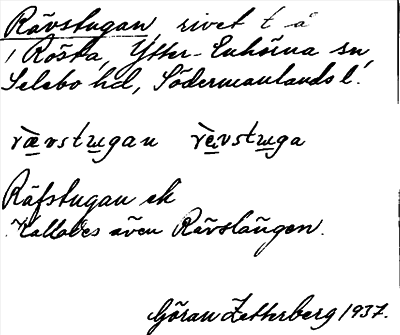 Rävstugan, rivet t å
i Rösta, Ytter-Enhörna sn,
Selebo hd, Södermanlands l.
rævstugan rèvstuga
Räfstugan ek
Kallades även Rävslängen.
Göran Zetterberg 1937.